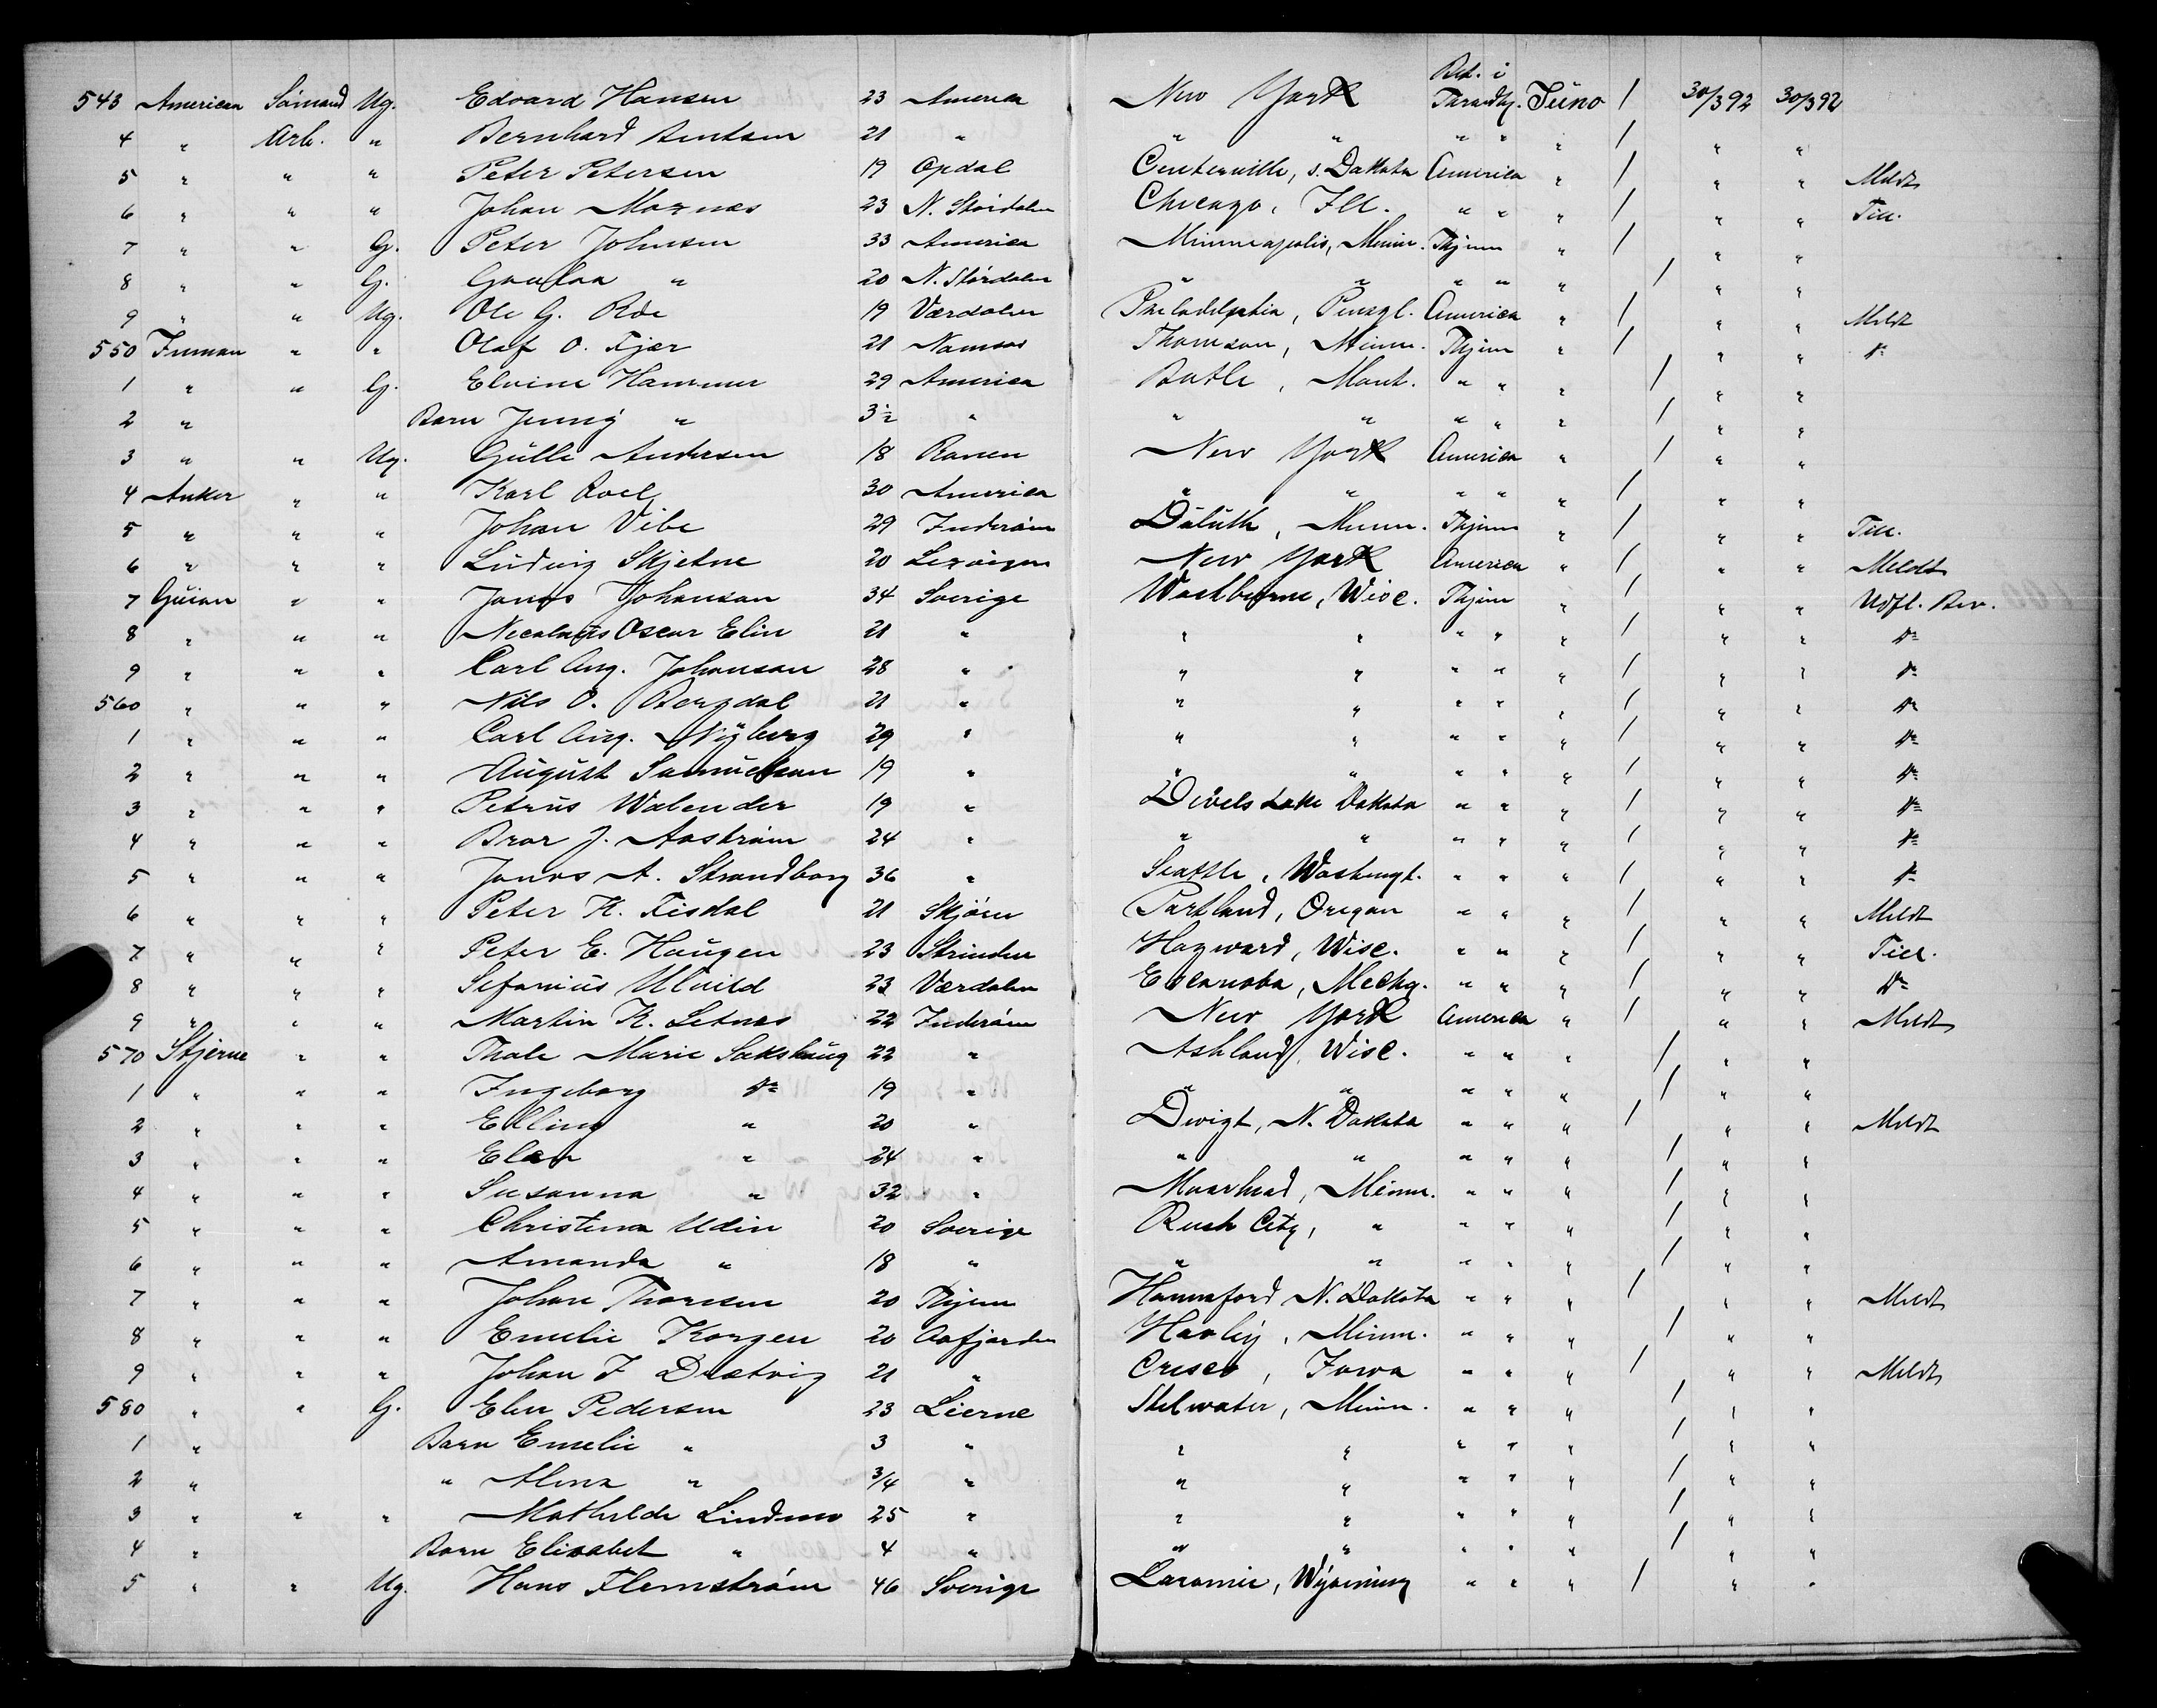 543 American Sömand Ug. Edvard Hansen 23 America New York Bet. i Trondhj. Juno / 30/3 92 30/3 92
4 " Arb. " Bernhard Berntsen 21 " " " " " " / " "
5 " " " Peter Petersen 19 Opdal Centerville, S. Dakota America " / " " Meldt
6 " " " Johan Moznes 23 N. Stördalen Chicago, Ill. " " " / " " Till.
7 " " G. Peter Johnsen 33 America Minneapolis, Minn. Thjem " / " "
8 " " G. " 20 N. Stördalen " " " " " / " "
9 " " Ug. Ole G. Röe 19 Værdalen Philadelphia, Pensyl. America " / " " Meldt
550 Inman " " Olaf O. Fjær 21 Namsos Thomson, Minn. Thjem " / " " do
1 " " G. Elvine Hammer 29 America Butle, Mont. " " " / " "
2 " Barn Jenny " 3½ " " " " " " / " "
3 " " Ug. Gulle Andersen 18 Ranen New York America " / " "
4 Anker " " Karl Roel 30 America " " " " " / " "
5 " " " Johan Vibe 29 Inderöen Duluth, Minn. Thjem " / " " Till.
6 " " " Ludvig Skjetne 20 Lexvigen New York America " / " " Meldt
7 Guion " " Jonas Johanson 34 Sverige Washburne, Wisc. Thjem " / " " Udfl. Bev.
8 " " " Nicolaus Oscar Elin 21 " " " " " " / " " do
9 " " " Carl Aug. Johanson 28 " " " " " " / " " do
560 " " " Nils O. Bergdal 21 " " " " " " / " " do
1 " " " Carl Aug. Nyberg 29 " " " " " " / " " do
2 " " " August Samuelson 19 " " " " " " / " " do
3 " " " Petrus Walender 19 " Divels Lake Dakota " " " / " " do
4 " " " Bror J. Aaström 24 " " " " " " / " " do
5 " " " Jonas A. Strandberg 36 " Seattle, Washingt. " " " / " " do
6 " " " Peter K. Fisdal 21 Skjörn Portland, Oregon " " " / " " Meldt
7 " " " Peter E. Haugen 23 Strinden Hayward, Wisc. " " " / " " Till.
8 " " " Sefanius Ulvild 23 Værdalen Escanaba, Mechg. " " " / " " do
9 " " " Martin K. Letnes 22 Inderöen New York America " / " " Meldt
570 Stjerne " " Thale Marie Sakshaug 22 " Ashland, Wisc. " " " / " "
1 " " " Ingeborg do 19 " " " " " " / " "
2 " " " Elling " 20 " Dwigt, N. Dakota " " " / " " Meldt
3 " " " Elen " 24 " " " " " " / " "
4 " " " Susanna " 32 " Moorhead, Minn. " " " / " "
5 " " " Christina Udin 20 Sverige Rush City, " " " " / " "
6 " " " Amanda " 18 " " " " " " / " "
7 " " " Johan Thoresen 20 Thjem Hannaford N. Dakota " " " / " " Meldt
8 " " " Emelie Korgen 20 Aafjorden Havley, Minn. " " " / " "
9 " " " Johan J Drætvig 21 " Cresco, Iowa " " " / " " Meldt
580 " " G. Elen Pedersen 23 Lierne Stelwater, Minn. " " " / " "
1 " Barn Emelie " 3 " " " " " " / " "
2 " " Alma " 3/4 " " " " " " / " "
3 " " " Mathilde Lindmo 25 " " " " " " / " "
4 " Barn Elisabet " 4 " " " " " " / " "
5 " " Ug. Hans Flemström 46 Sverige Laramie, Wyoming " " " / " "